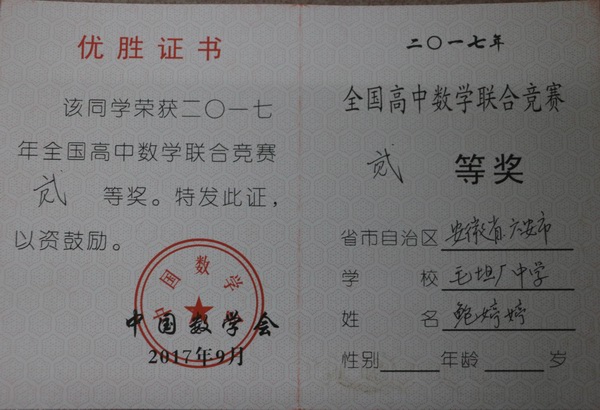 优胜证书
该同学荣获二〇一七
年全国高中数学联合竞赛
贰 等奖。特发此证，
以资鼓励。
中国数学会
中国数学会
2017年9月
二〇一七年
全国高中数学联合竞赛
贰 等奖
省市自治区 安徽省六安市
学校 毛坦厂中学
姓名 鲍婷婷
性别 年龄 岁